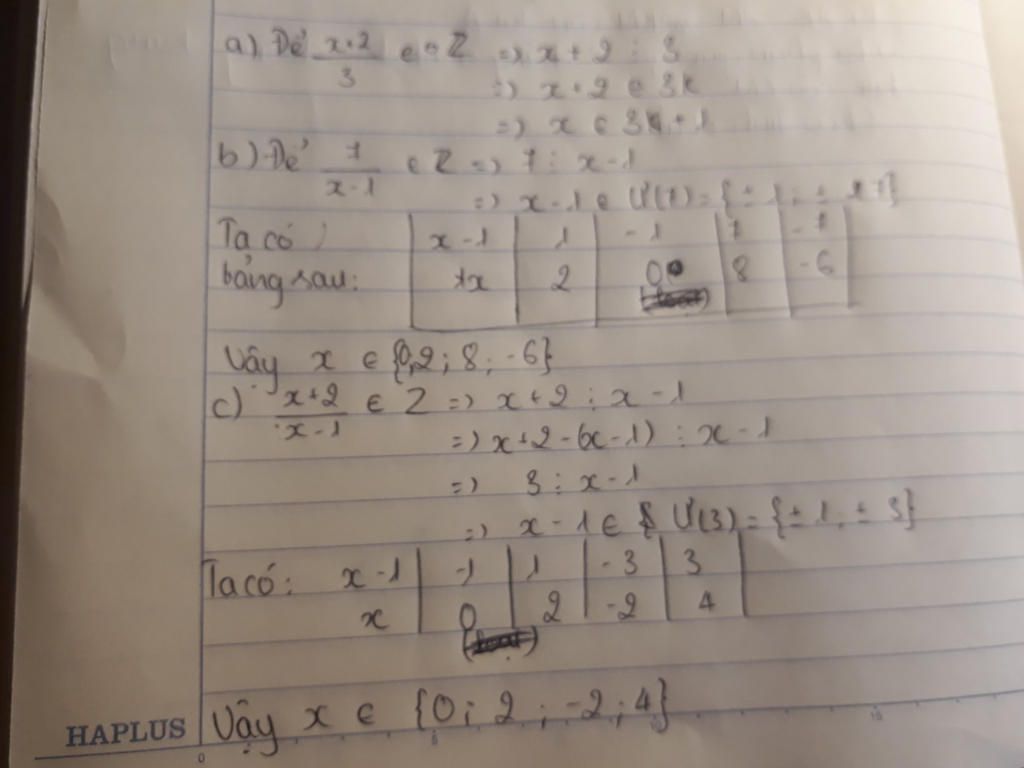 a) Để x+2/3 ∈ Z => x + 2 ⋮ 3
=> x + 2 ∈ 3k
=> x ∈ 3k + 1
b) Để 7/x-1 ∈ Z => 7 ⋮ x - 1
=> x - 1 ∈ Ư(7) = {± 1; ± 7}
Ta có x - 1 1 - 1 7 - 7
bảng sau: x 2 0 8 - 6
Vậy x ∈ {0,2; 8; -6}
c) x+2/x-1 ∈ Z => x + 2 ⋮ x - 1
=> x + 2 - (x - 1) ⋮ x - 1
=> 3 ⋮ x - 1
=> x - 1 ∈ Ư(3) = {± 1; ± 3}
Ta có: x - 1 -1 1 - 3 3
x 0 2 -2 4
HAPLUS Vậy x ∈ {0; 2; -2; 4}
0 5 10 15